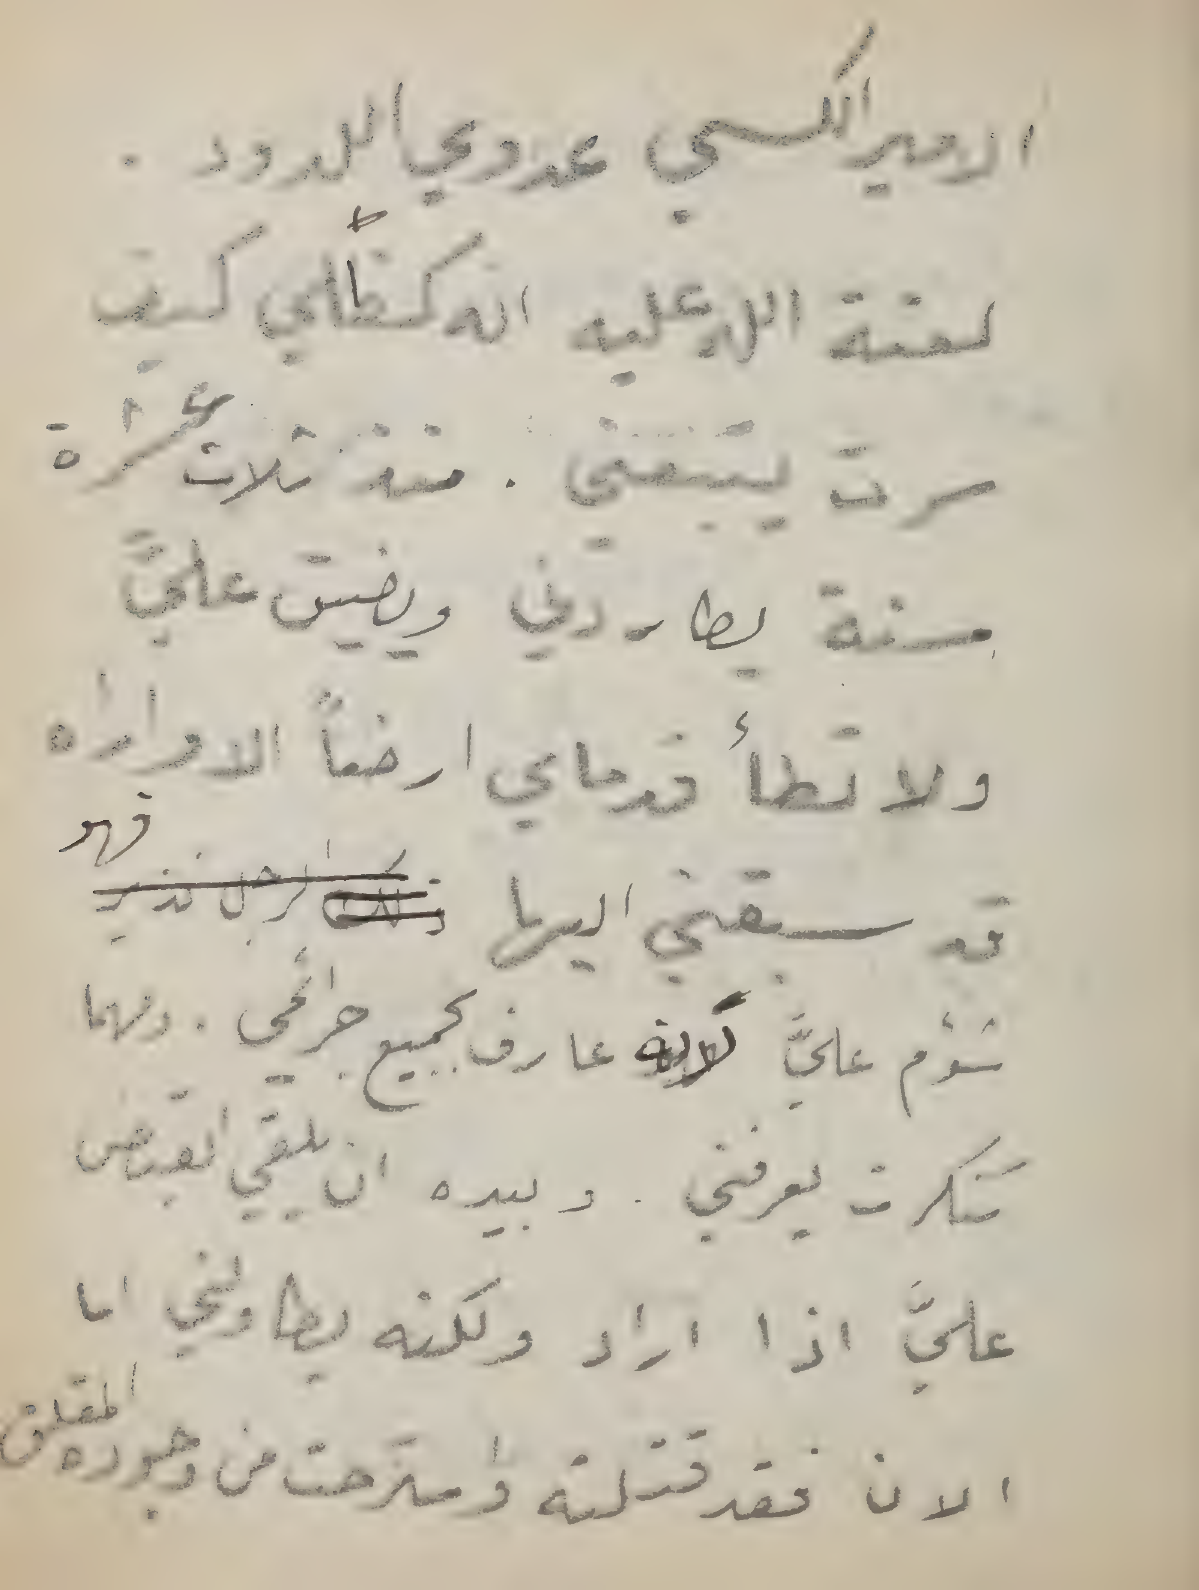 الامير الكسي عدوي اللدود .
لعنة الله عليه انه كظلي كيف
سرت يتبعني . منذ ثلاث عشرة
سنة يطاردني ويضيق عليَّ
ولا تطأ قدماي ارضاً الا واراه
قد سبقني اليها فهو
شؤم عليَّ لانه عارف بجميع جرائمي . ومهما
تنكرت يعرفني . وبيده ان يلقي القبض
عليَّ اذا اراد ولكنه يطاولني اما
الان فقد قتلته واسترحت من وجوده المقلق